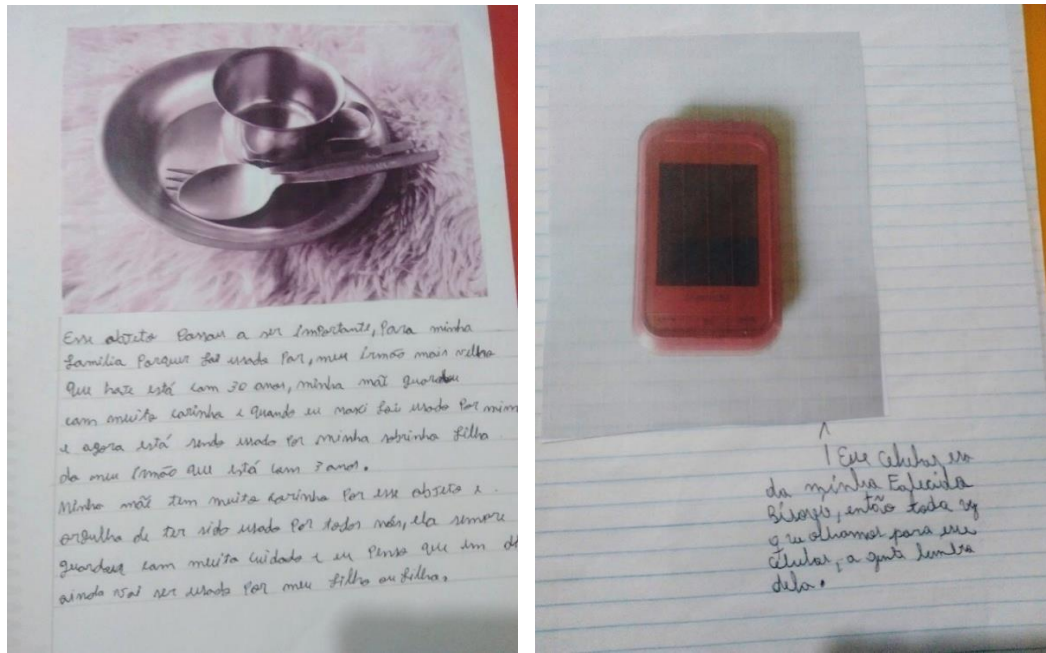 Esse objeto Passou a ser importante, Para minha
família Porque foi usado Por, meu irmão mais velho
que hoje está com 30 anos, minha mãe guardou
com muito carinho e quando eu nasci foi usado Por mim
e agora está sendo usado Por minha sobrinha filha
do meu irmão que está com 3 anos.
Minha mãe tem muito carinho Por esse objeto e
orgulho de ter sido usado Por todos nós, ela sempre
guardou com muito cuidado e eu Penso que um di
ainda vai ser usado Por meu filho ou filha.
Esse celular era
da minha Falecida
Bisavó, então toda vez
que olhamos para esse
celular, a gente lembra
dela.